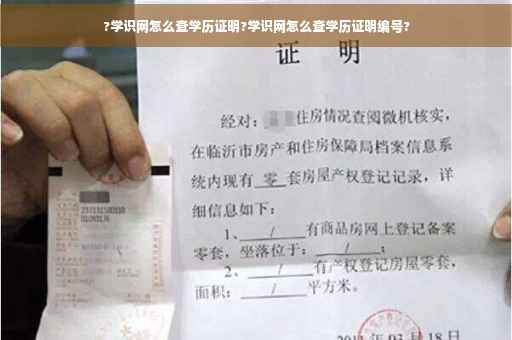 ?学识网怎么查学历证明?学识网怎么查学历证明编号?
证 明
经对: 住房情况查阅微机核实,
在临沂市房产和住房保障局档案信息系
统内现有 零 套房屋产权登记记录,详
细信息如下:
1、 / 有商品房网上登记备案
零套,坐落位于: / ;
2、 / 有产权登记房屋零套,
面积: / 平方米。
03月18日